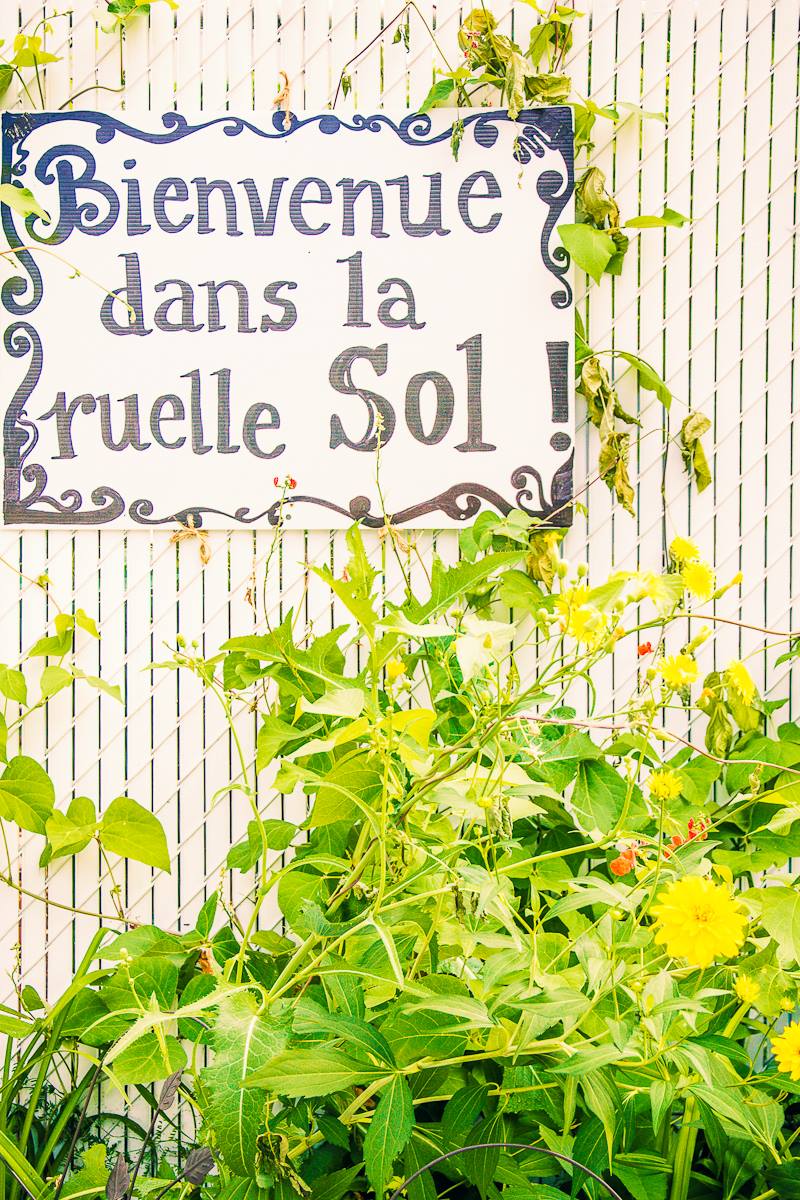 Bienvenue
dans la
ruelle Sol !